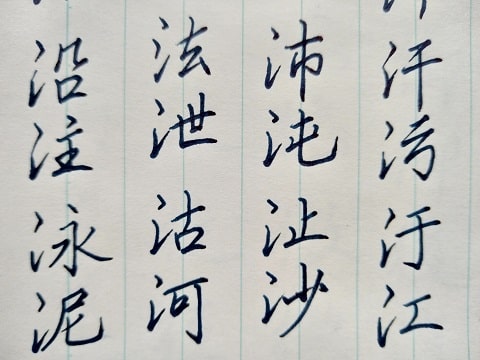 汗污汙江
沛沌沚沙
法泄沽河
沿注泳泥